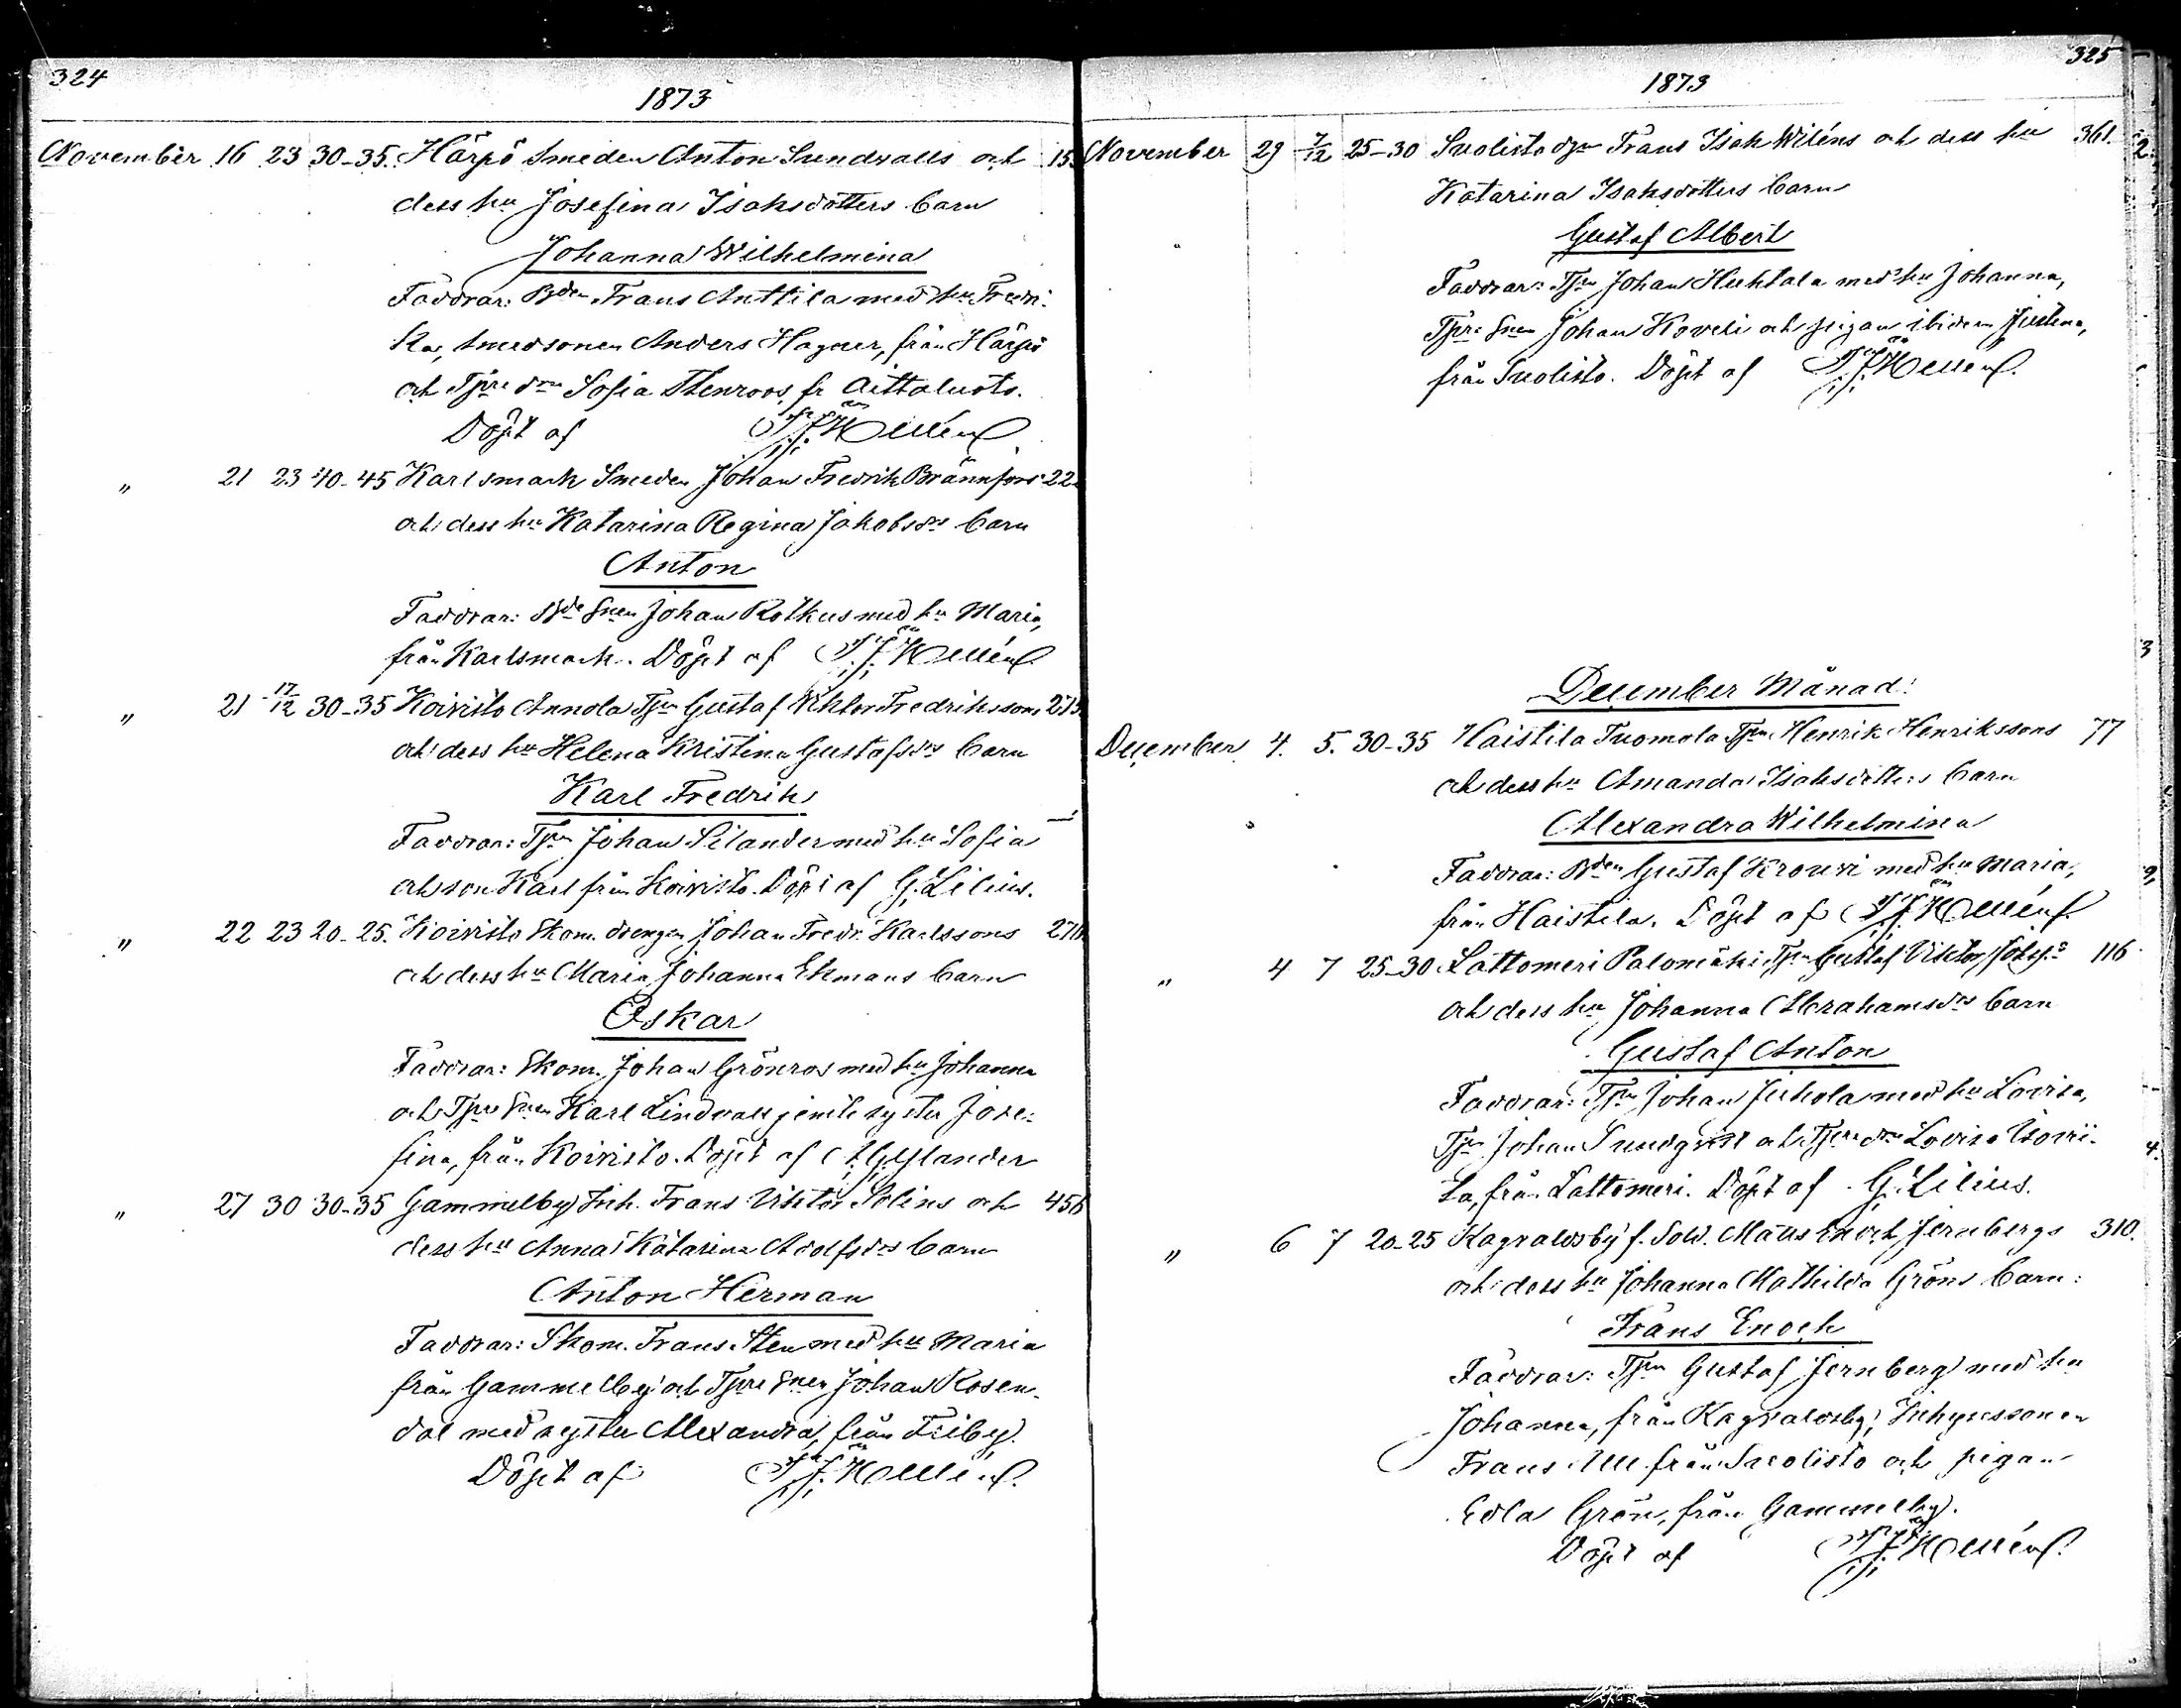 324
1873
November 16 23 30-35. Härpö Smeden Anton Sundvalls och 15
dess hu Josefina Isaksdotters barn
Johanna Wilhelmina
Faddrar: Bden Frans Anttila med hu Fredri-
ka, Smedsonen Anders Hagner, från Härpö
och Tpre dn Sofia Stenroos, fr Aittaluoto.
Döpt af
" 21 23 40-45 Karlsmark Smeden Johan Fredrik Brännfors 22
och dess hu Katarina Regina Jakobsdrs barn
Anton
Faddrar: Bde Snen Johan Rotkus med hu Maria,
från Karlsmark. Döpt af
" 21 17/12 30-35 Koivisto Annola Tpn Gustaf Viktor Fredrikssons 275
och dess hu Helena Kristina Gustafsdrs barn
Karl Fredrik
Faddrar: Tpn Johan Silander med hu Sofia
och son Karl från Koivisto. Döpt af G. Lilius.
" 22 23 20-25. Koivisto Skom. drengen Johan Fredr. Karlssons 270
och dess hu Maria Johanna Ekmans barn
Oskar
Faddrar: Skom. Johan Grönros med hu Johanna
och Tpre Snen Karl Lindvall jemte syster Jose-
fina, från Koivisto. Döpt af A. Gylander
" 27 30 30-35 Gammelby Inh. Frans Viktor Solins och 456
dess hu Anna Katarina Adolfsdrs barn
Anton Herman
Faddrar: Skom. Frans Sten med hu Maria
från Gammelby och Tpre Snen Johan Rosen-
dal med syster Alexandra, från Friby.
Döpt af
325
1873
November 29 7/12 25-30 Suolisto dgn Frans Isak Wiléns och dess hu 361.
Katarina Isaksdotters barn
Gustaf Albert
Faddrar: Tpn Johan Huhtala med hu Johanna,
Tpre Snen Johan Koveli och pigan ibidem Justina,
från Suolisto. Döpt af
December Månad:
December 4. 5. 30-35 Haistila Tuomola Tpn Henrik Henrikssons 77
och dess hu Amanda Isaksdotters barn
Alexandra Wilhelmina
Faddrar: Bden Gustaf Krouvi med hu Maria,
från Haistila. Döpt af
" 4 7 25-30 Lattomeri Palomäki Tpn Gustaf Viktor 116
och dess hu Johanna Abrahamsdrs barn
Gustaf Anton
Faddrar: Tpn Johan Juhola med hu Lovisa,
Tpn Johan Sundqvist och Tpre dn Lovisa
la, från Lattomeri. Döpt af G. Lilius.
" 6 7 20-25 Ragvaldsby f. Sold. Matts Enoch Jernbergs 310.
och dess hu Johanna Mathilda Gröns barn:
Frans Enoch
Faddrar: Tpn Gustaf Jernberg med hu
Johanna, från Ragvaldsby, Inhysessonen
Frans från Suolisto och pigan
Edla Grön, från Gammelby.
Döpt af